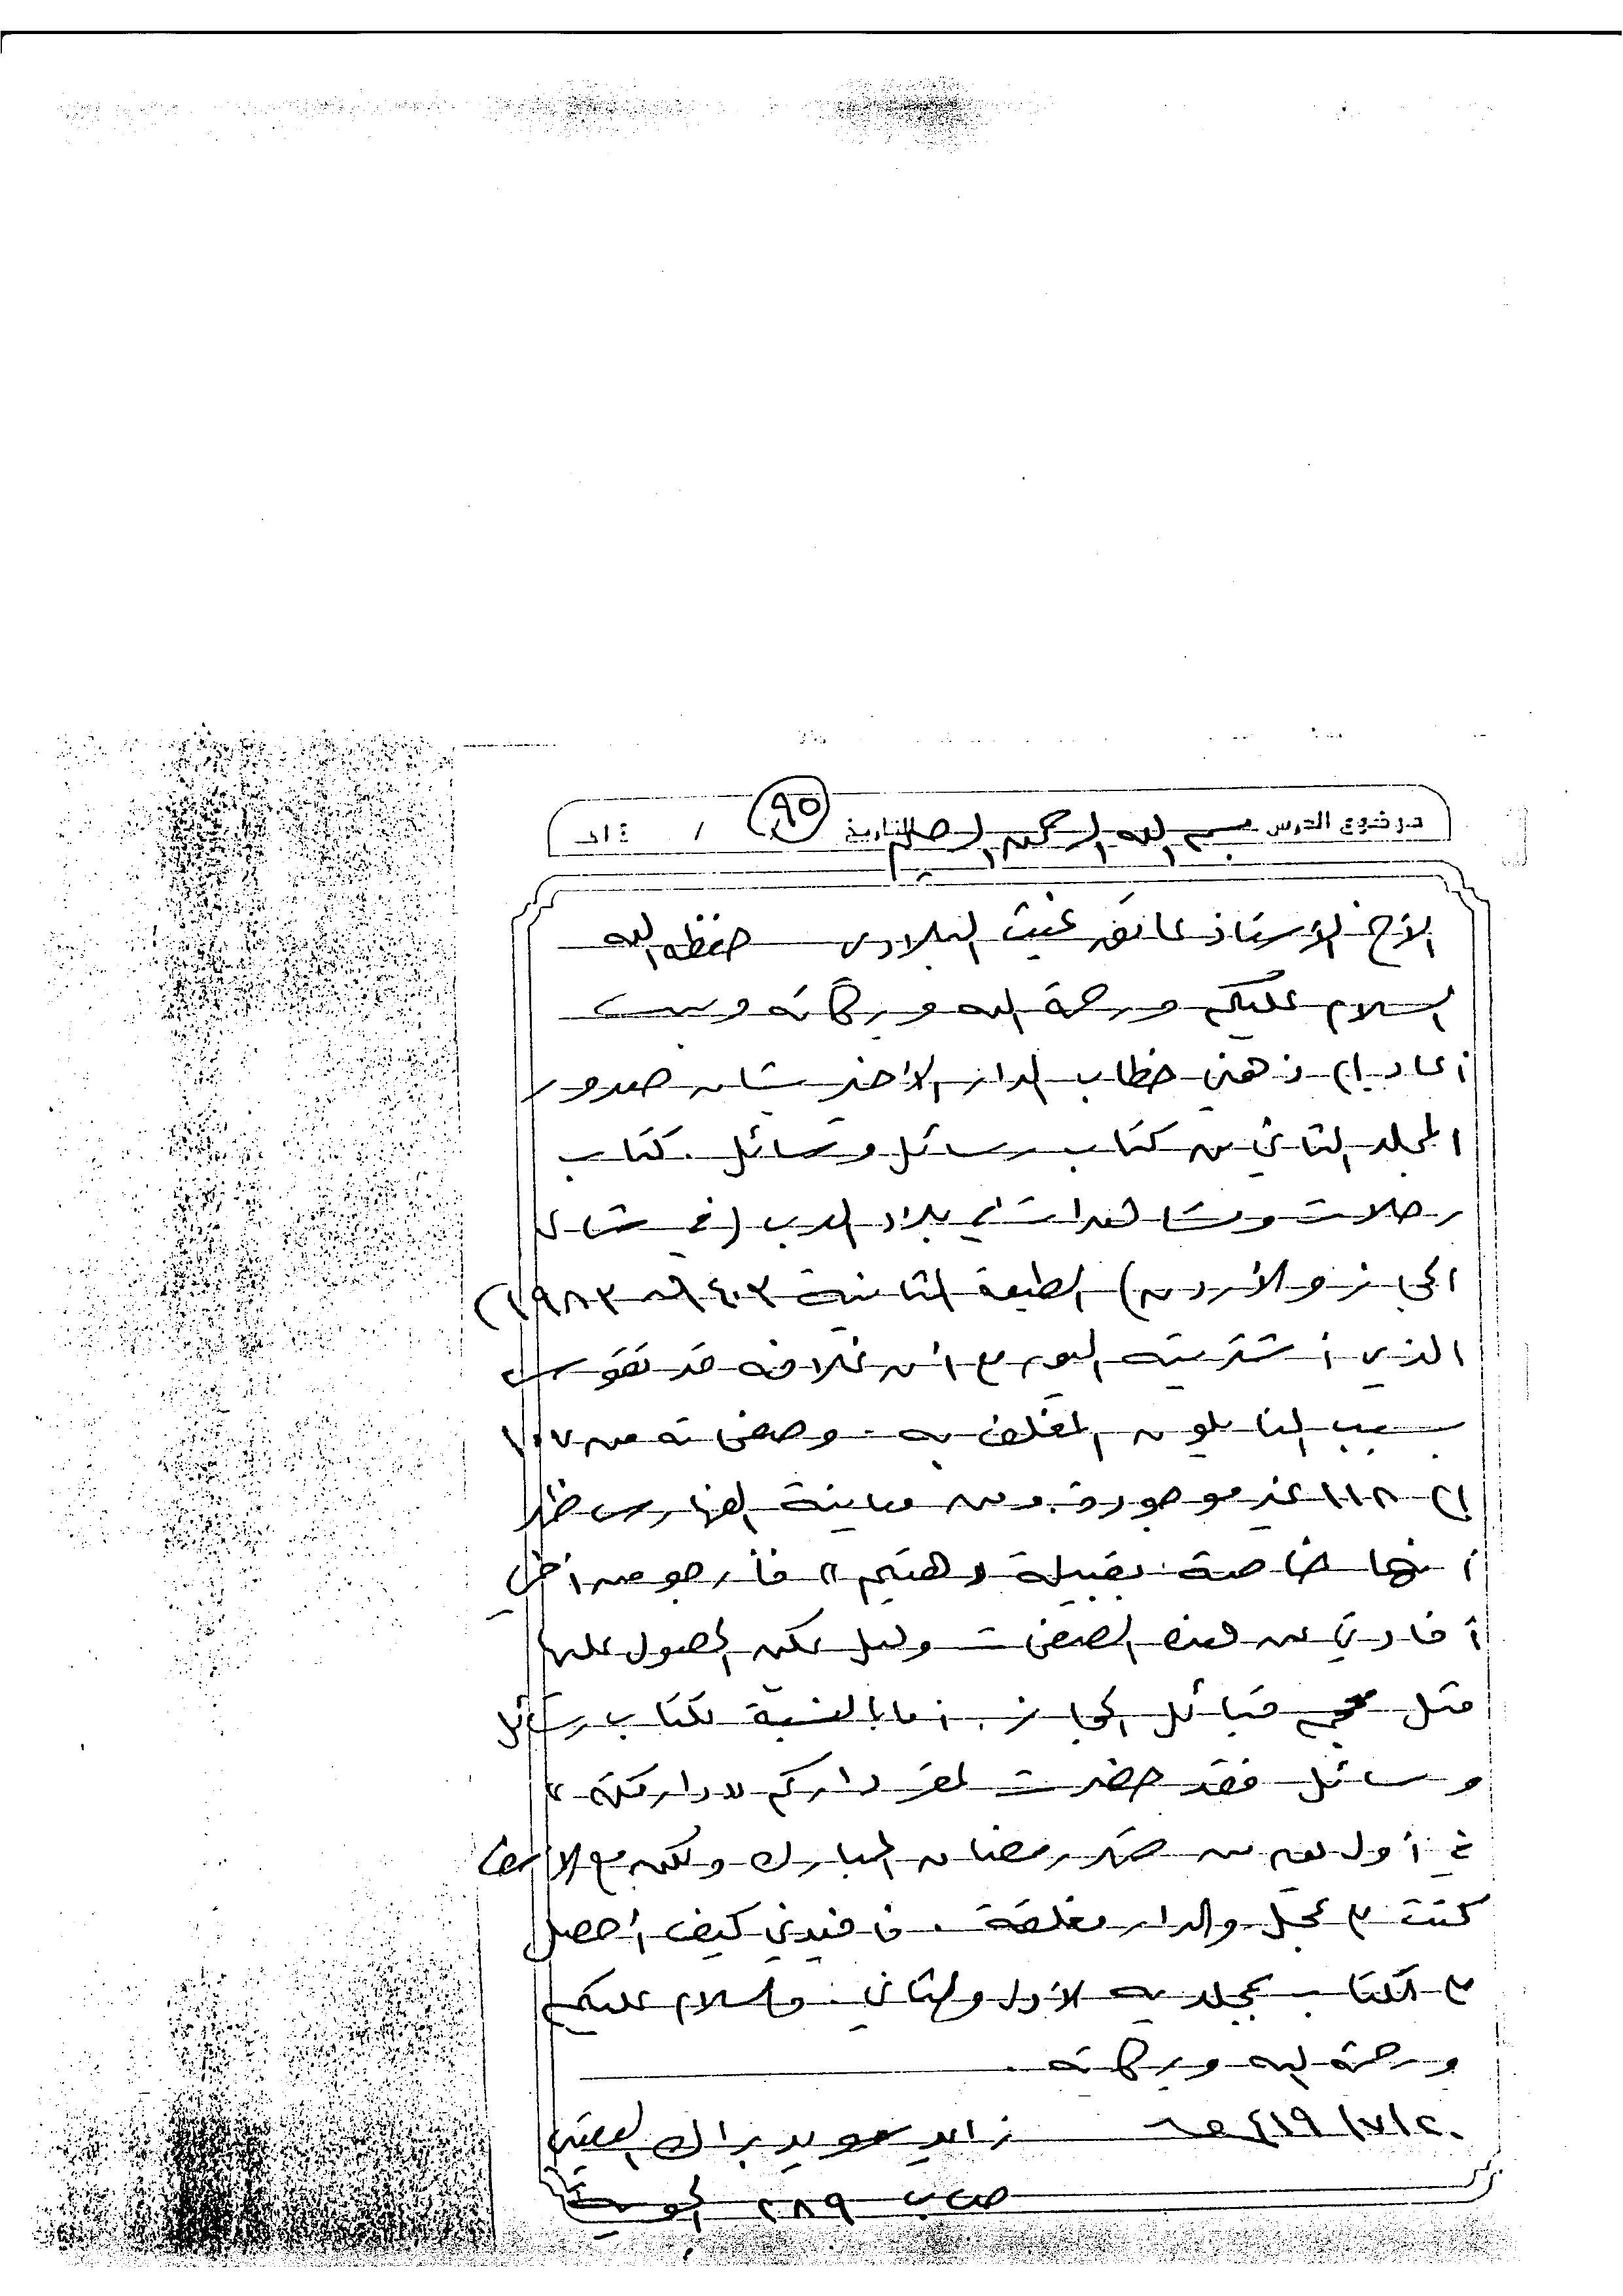 ٩٥
موضوع الدرس بسم الله الرحمن الرحيم التاريخ / ١٤هـ
الأخ الأستاذ عاتق غيث البلادي حفظه الله
السلام عليكم ورحمة الله وبركاته وبعد
أعاد إلى ذهني خطاب الدار الأخير بشأن صدور
المجلد الثاني من كتاب رسائل ومسائل. كتاب
رحلات ومشاهدات في بلاد العرب (في شمال
الحجاز والأردن) الطبعة الثانية ١٤٠٣هـ ١٩٨٣م)
الذي اشتريته اليوم مع أن غلافه قد تقوس
بسبب النايلون المغلف به. وصفحاته من ١٠٧
إلى ١١٨ غير موجودة ومن معاينة الفهارس ظهر
أنها خاصة بقبيلة «هتيم» فأرجو من أخي
أفادتي عن هذه الصفحات وهل يمكن الحصول عليها
مثل معجم قبائل الحجاز. أما بالنسبة لكتاب رسائل
ومسائل فقد حضرت لمقر داركم «دار مكة»
في أول يوم من شهر رمضان المبارك ولكن مع الأسف
كنت على عجل والدار مغلقة. فأفيدني كيف أحصل
على الكتاب بمجلديه الأول والثاني. والسلام عليكم
ورحمة الله وبركاته.
١٤١٩/٧/٢٠هـ زايد سويد براك
ص ب ٢٨٩